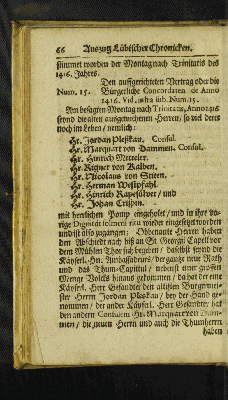 66 Auszug Lübischer Chronicken.
stimmet worden der Montag nach Trinitatis des
1416. Jahres.
Den auffgerichteten Vertrag oder die
Num. 15. Bürgerliche Concordaten de Anno
1416. Vid. infra sub. Num. 15.
Am besagten Montag nach Trinitatis, Anno 1416
seynd die alten ausgewichenen Herren, so viel derer
noch im Leben / nemlich:
Hr. Jordan Pleskau, Consul.
Hr. Marquart von Dammen, Consul.
Hr. Hinrich Metteler.
Hr. Rigner von Kalven.
Hr. Nicolaus von Stiten.
Hr. Herman Westphahl.
Hr. Hinrich Rapesilver / und
Hr. Johan Crispin.
mit herrlichen Pomp eingeholet / und in ihre vo-
rige Dignität wieder eingesetzet worden
und ist also zugangen: Obbenante Herren haben
den Abschiedt nach biß an St. Georgii Capell vor
dem Mühlen Thor sich begeben / daselbst seynd die
Käyserl. Hn. Ambassadeurs / der gantze neue Rath
und das Thum-Capittul / nebenst einer grossen
Menge Volcks hinaus gekommen / da hat der eine
Käyserl. Hr. Gesandter / den ältisten Bürgermei-
ster Herrn Jordan Pleskau / bey der Hand ge-
nommen / der ander Käyserl. Herr Gesandter / hat
den andern Consulem Hr. Marquart von Dam-
men / die neuen Herrn und auch die Thumherrn
haben